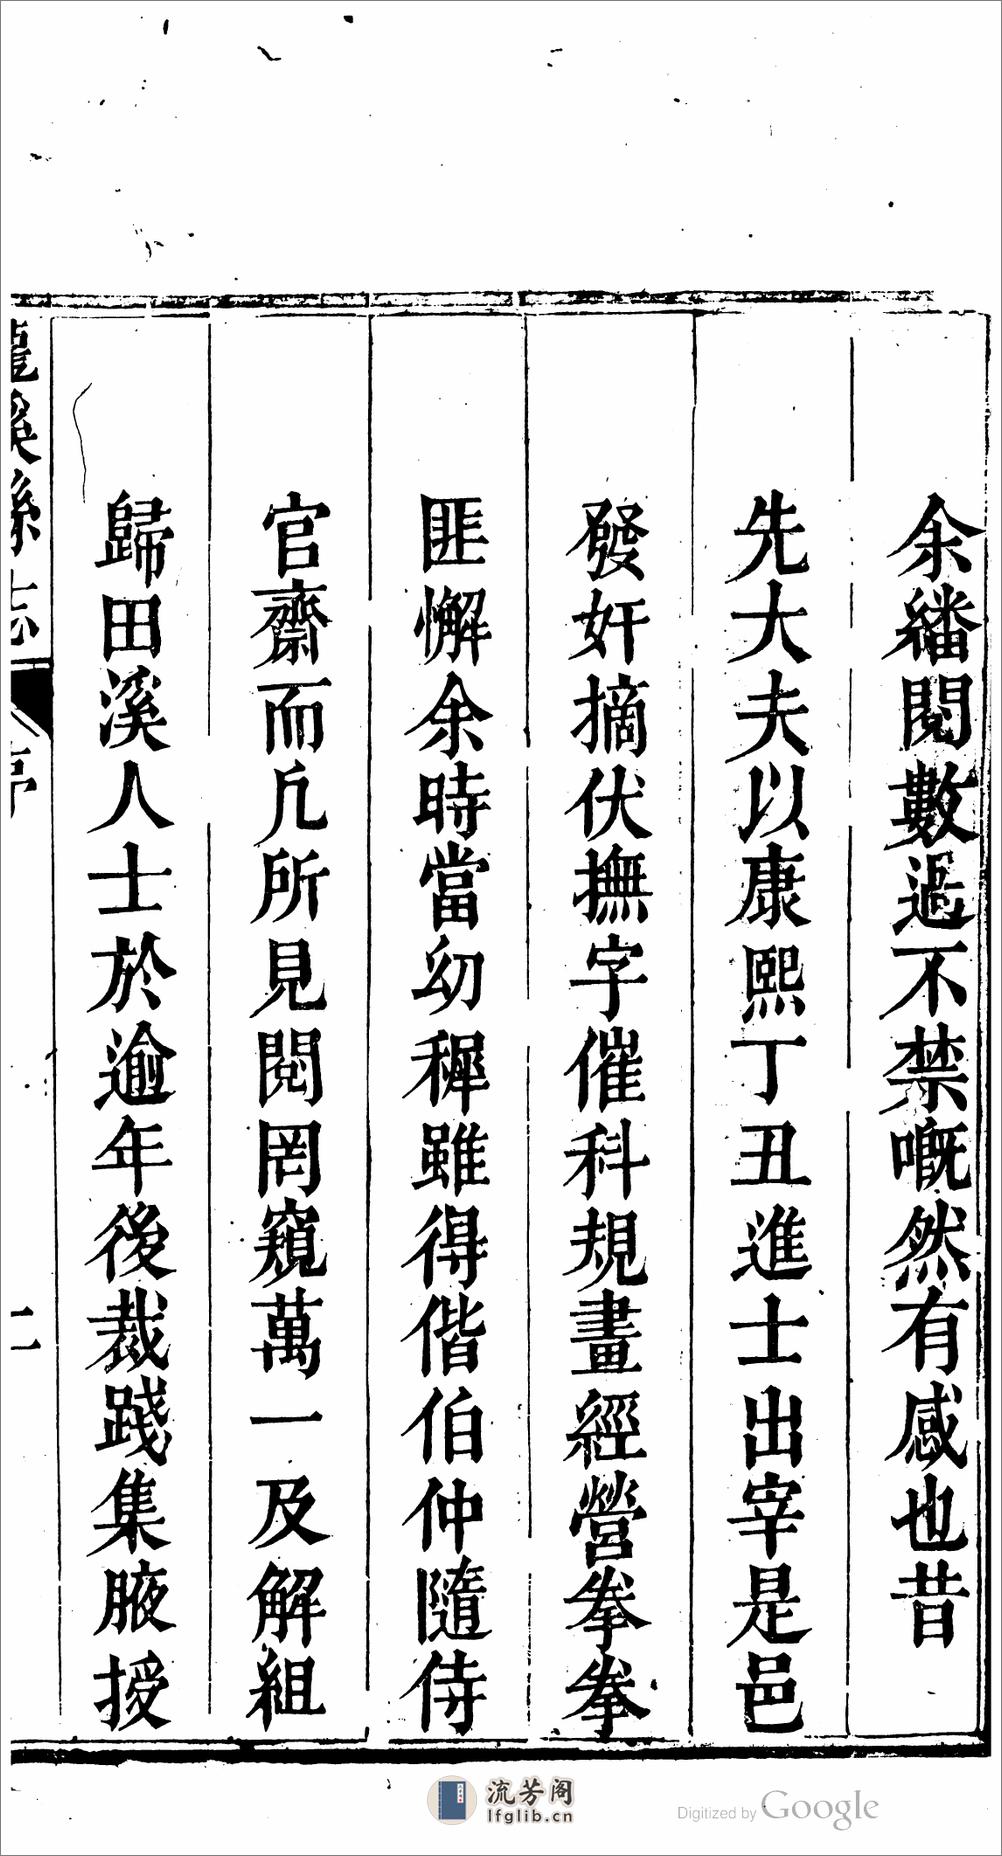 余繙閱數過不禁嘅然有感也昔
先大夫以康熙丁丑進士出宰是邑
發奸摘伏撫字催科規畫經營拳拳
匪懈余時當幼穉雖得偕伯仲隨侍
官齋而凢所見閱罔窺萬一及解組
歸田溪人士於逾年後裁踐集腋授
龍溪縣志
序
二
流芳阁
lfglib.cn
Digitized by Google